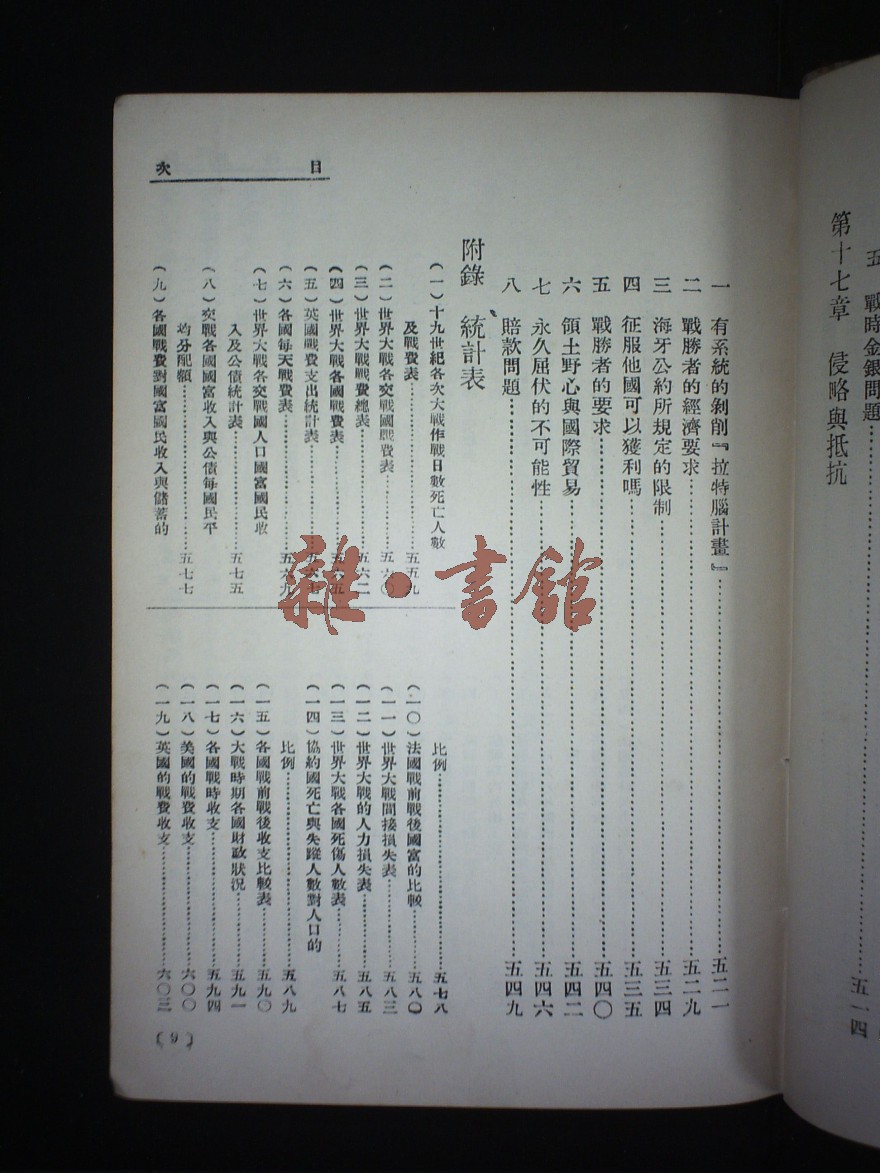 五 戰時金銀問題……五一四
第十七章 侵略與抵抗
目次
一 有系統的剝削『拉特腦計畫』……五二一
二 戰勝者的經濟要求……五二九
三 海牙公約所規定的限制……五三四
四 征服他國可以獲利嗎……五三五
五 戰勝者的要求……五四〇
六 領土野心與國際貿易……五四二
七 永久屈伏的不可能性……五四六
八 賠款問題……五四九
附錄 統計表
(一)十九世紀各次大戰作戰日數死亡人數
及戰費表……五五九
(二)世界大戰各交戰國戰費表……五六〇
(三)世界大戰戰費總表……五六二
(四)世界大戰各國戰費表……五六五
(五)英國戰費支出統計表……五六七
(六)各國每天戰費表……五六九
(七)世界大戰各交戰國人口國富國民收
入及公債統計表……五七五
(八)交戰各國國富收入與公債每國民平
均分配額……五七七
(九)各國戰費對國富國民收入與儲蓄的
比例……五七八
(一〇)法國戰前戰後國富的比較……五八〇
(一一)世界大戰間接損失表……五八三
(一二)世界大戰的人力損失表……五八五
(一三)世界大戰各國死傷人數表……五八七
(一四)協約國死亡與失蹤人數對人口的
比例……五八九
(一五)各國戰前戰後收支比較表……五九〇
(一六)大戰時期各國財政狀況……五九一
(一七)各國戰時收支……五九四
(一八)美國的戰費收支……六〇〇
(一九)英國的戰費收支……六〇三
(9)
雜·書館